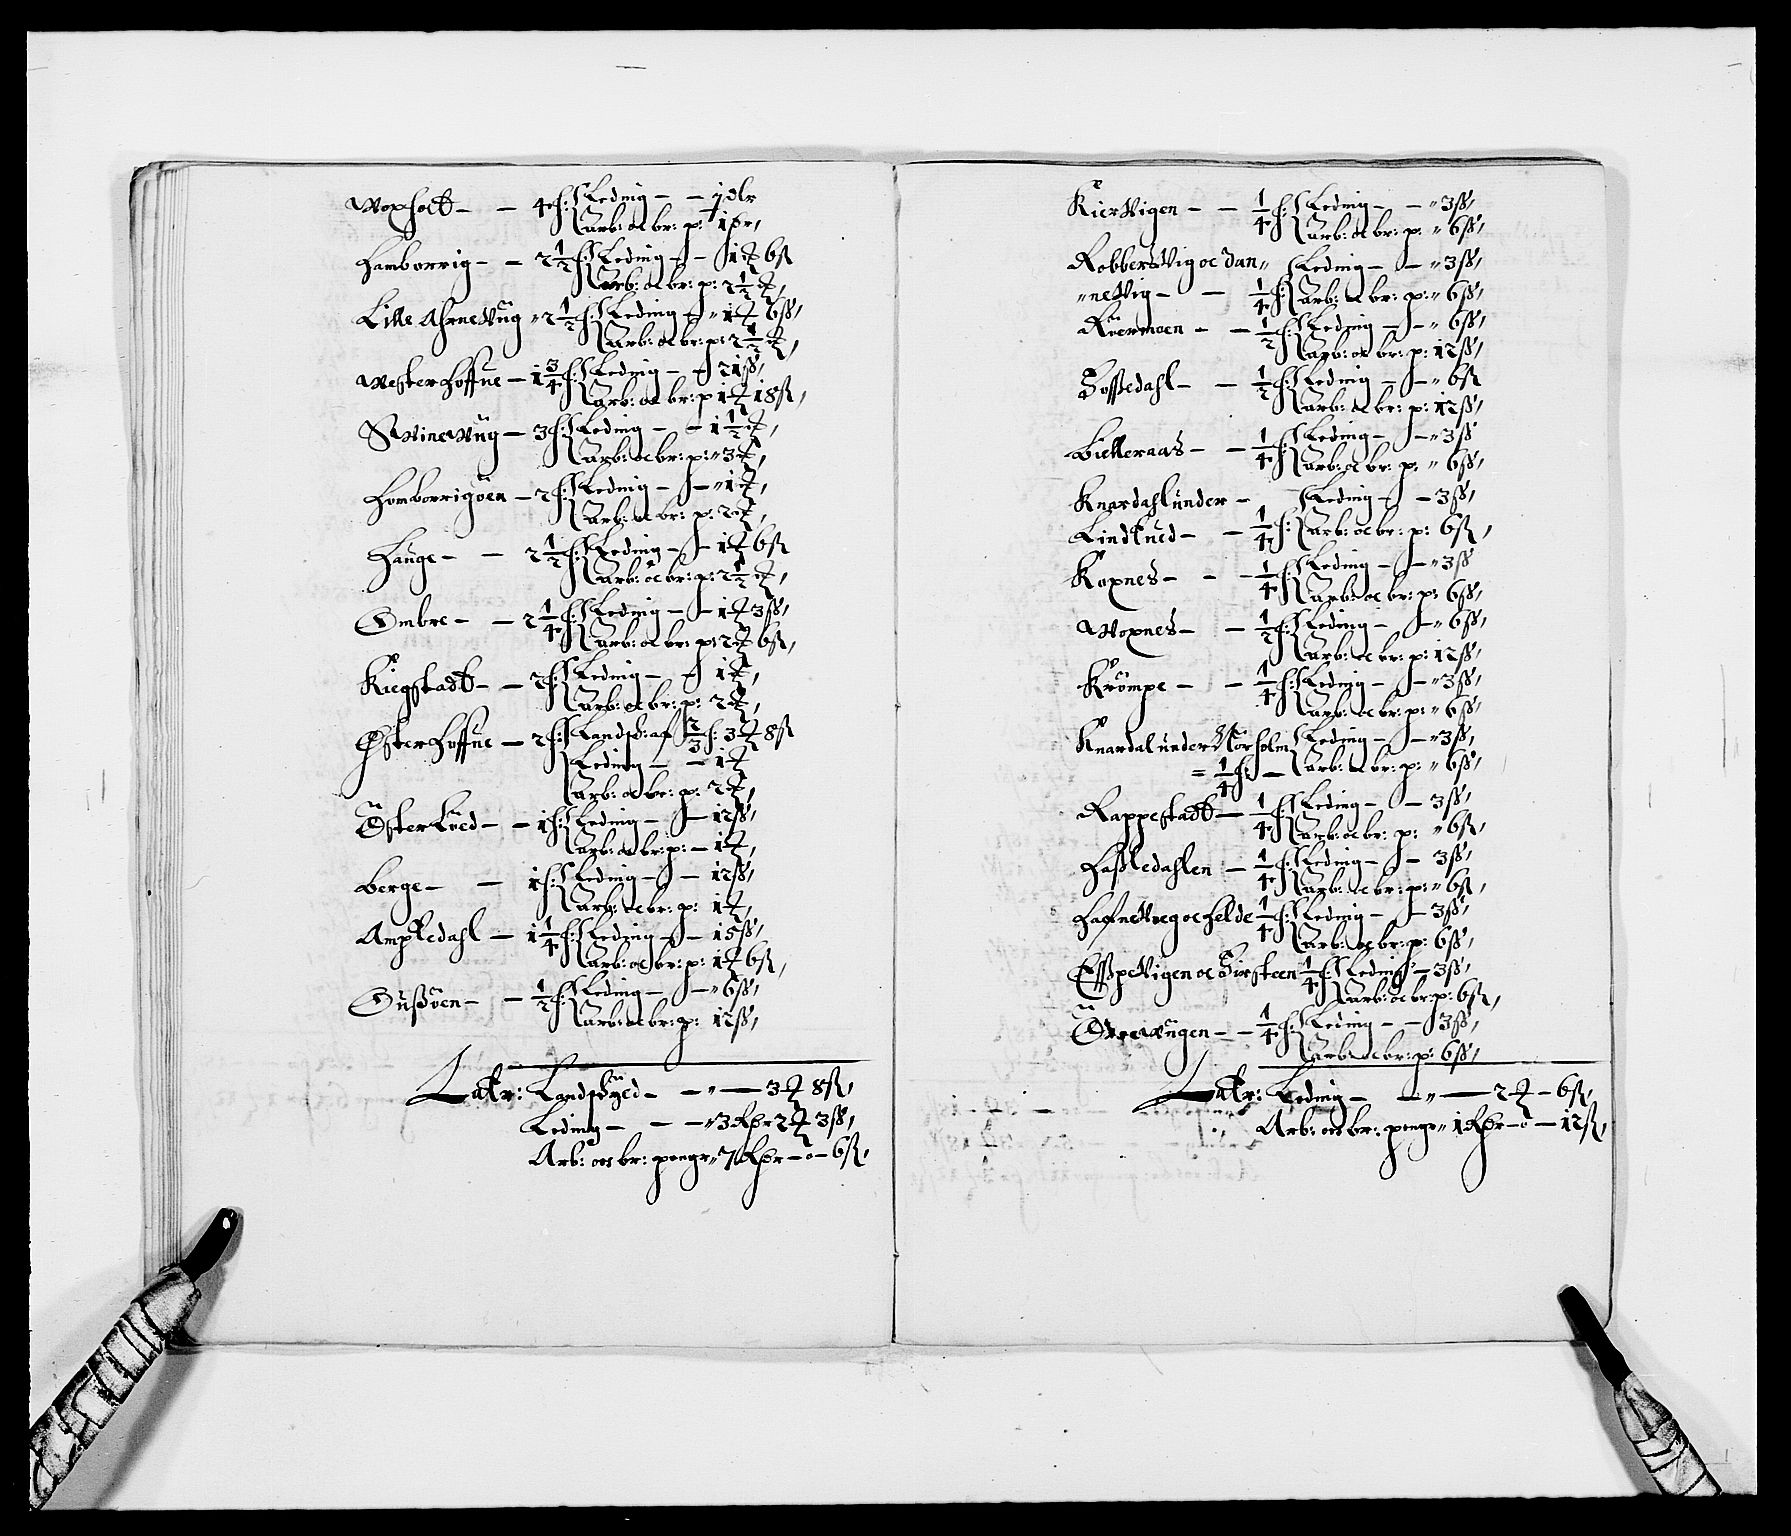 Moxholt — — 4 h: Leding — — 1 dlr
Arb: oc br: p: 1 pr,
Hamborrig — — 2 1/2 h: Leding — — 1 ₰ 6 ß
Arb: oc br: p: 2 1/2 ₰,
Lille Ahrnevug 2 1/2 h: Leding — 1 ₰ 6 ß,
Arb: oc br: p: 2 1/2 ₰,
Westerhoffue — 1 3/4 h: Leding — — 21 ß,
Arb: oc br: p 1 ₰ 18 ß,
Swinewug — 3 h: Leding — — 1 1/2 ₰,
Arb: oc br: p: 3 ₰,
Homborrigöen — 2 h: Leding — — 1 ₰,
Arb: oc br: p: 2 ₰,
Hauge — — 2 1/2 h: Leding — — 1 ₰ 6 ß
Arb: oc br: p: 2 1/2 ₰,
Ombre — — 2 1/4 h: Leding — — 1 ₰ 3 ß,
Arb: oc br: p: 2 ₰ 6 ß,
Kiegstadt — — 2 h: Leding — — 1 ₰,
Arb: oc br: p: 2 ₰,
Østerhoffue — 2 h: Landsk: af 2/3 h: 3 ₰ 8 ß
Leding — — 1 ₰
Arb: oc br: p: 2 ₰,
Østerkued — — 1 h: Leding — — 12 ß,
Arb: oc br: p: — 1 ₰,
Berge — — 1 h: Leding — — 12 ß,
Arb: oc br: p: 1 ₰,
Ampledahl — 1 1/4 h: Leding — — 15 ß,
Arb: oc br: p: 1 ₰ 6 ß,
Gußöen — — 1/2 h: Leding — — 6 ß,
Arb: oc br: p: 12 ß,
Latr: Landskyed — — — 3 ₰ 8 ß,
Leding — — — 3 Rdr 2 ₰ 3 ß,
Arb: oc br: penge 7 Rdr — o — 6 ß,
Kierwigen — — 1/4 h: Leding — — 3 ß,
Arb: oc br: p: 6 ß,
Robberswig oc Dan„ Leding — — 3 ß,
„newig — — 1/4 h: Arb: oc br: p: 6 ß,
Rüermoen — — 1/2 h: Leding — — 6 ß,
Arb: oc br: p: 12 ß,
Foßedahl — — 1/2 h: Leding — — 6 ß
Arb: oc br: p: 12 ß,
Bitteraas — — 1/4 h: Leding — — 3 ß
Arb: oc br: p: 6 ß,
Knardahl under — Leding — — 3 ß,
Lindkued — — 1/4 h: Arb: oc br: p: 6 ß,
Kopnes — — 1/4 h: Leding — — 3 ß
Arb: oc br: p: 6 ß,
Moxnes — — 1/2 h: Leding — — 6 ß,
Arb: oc br: p: 12 ß,
Krömpe — — 1/4 h: Leding — — 3 ß,
Arb: oc br: p: 6 ß,
Knardal under Nörholm Leding — — 3 ß,
= 1/4 h: — Arb: oc br: p: 6 ß,
Rappestadt — 1/4 h: Leding — — 3 ß,
Arb: oc br: p: 6 ß,
Haßledahlen — 1/4 h: Leding — — 3 ß,
Arb: oc br: p: 6 ß,
Haffneweg oc Helde — 1/4 h: Leding — — 3 ß,
Arb: oc br: p: 6 ß,
Eßpewigen oc Birsteen 1/4 h: Leding — 3 ß,
Arb: oc br: p: 6 ß,
Örewugen — — 1/4 h: Leding — — 3 ß,
Arb: oc br: p: 6 ß,
Latr: Leding — — — 2 ₰ — 6 ß,
Arb: oc br: penge 1 Rdr — o — 12 ß,